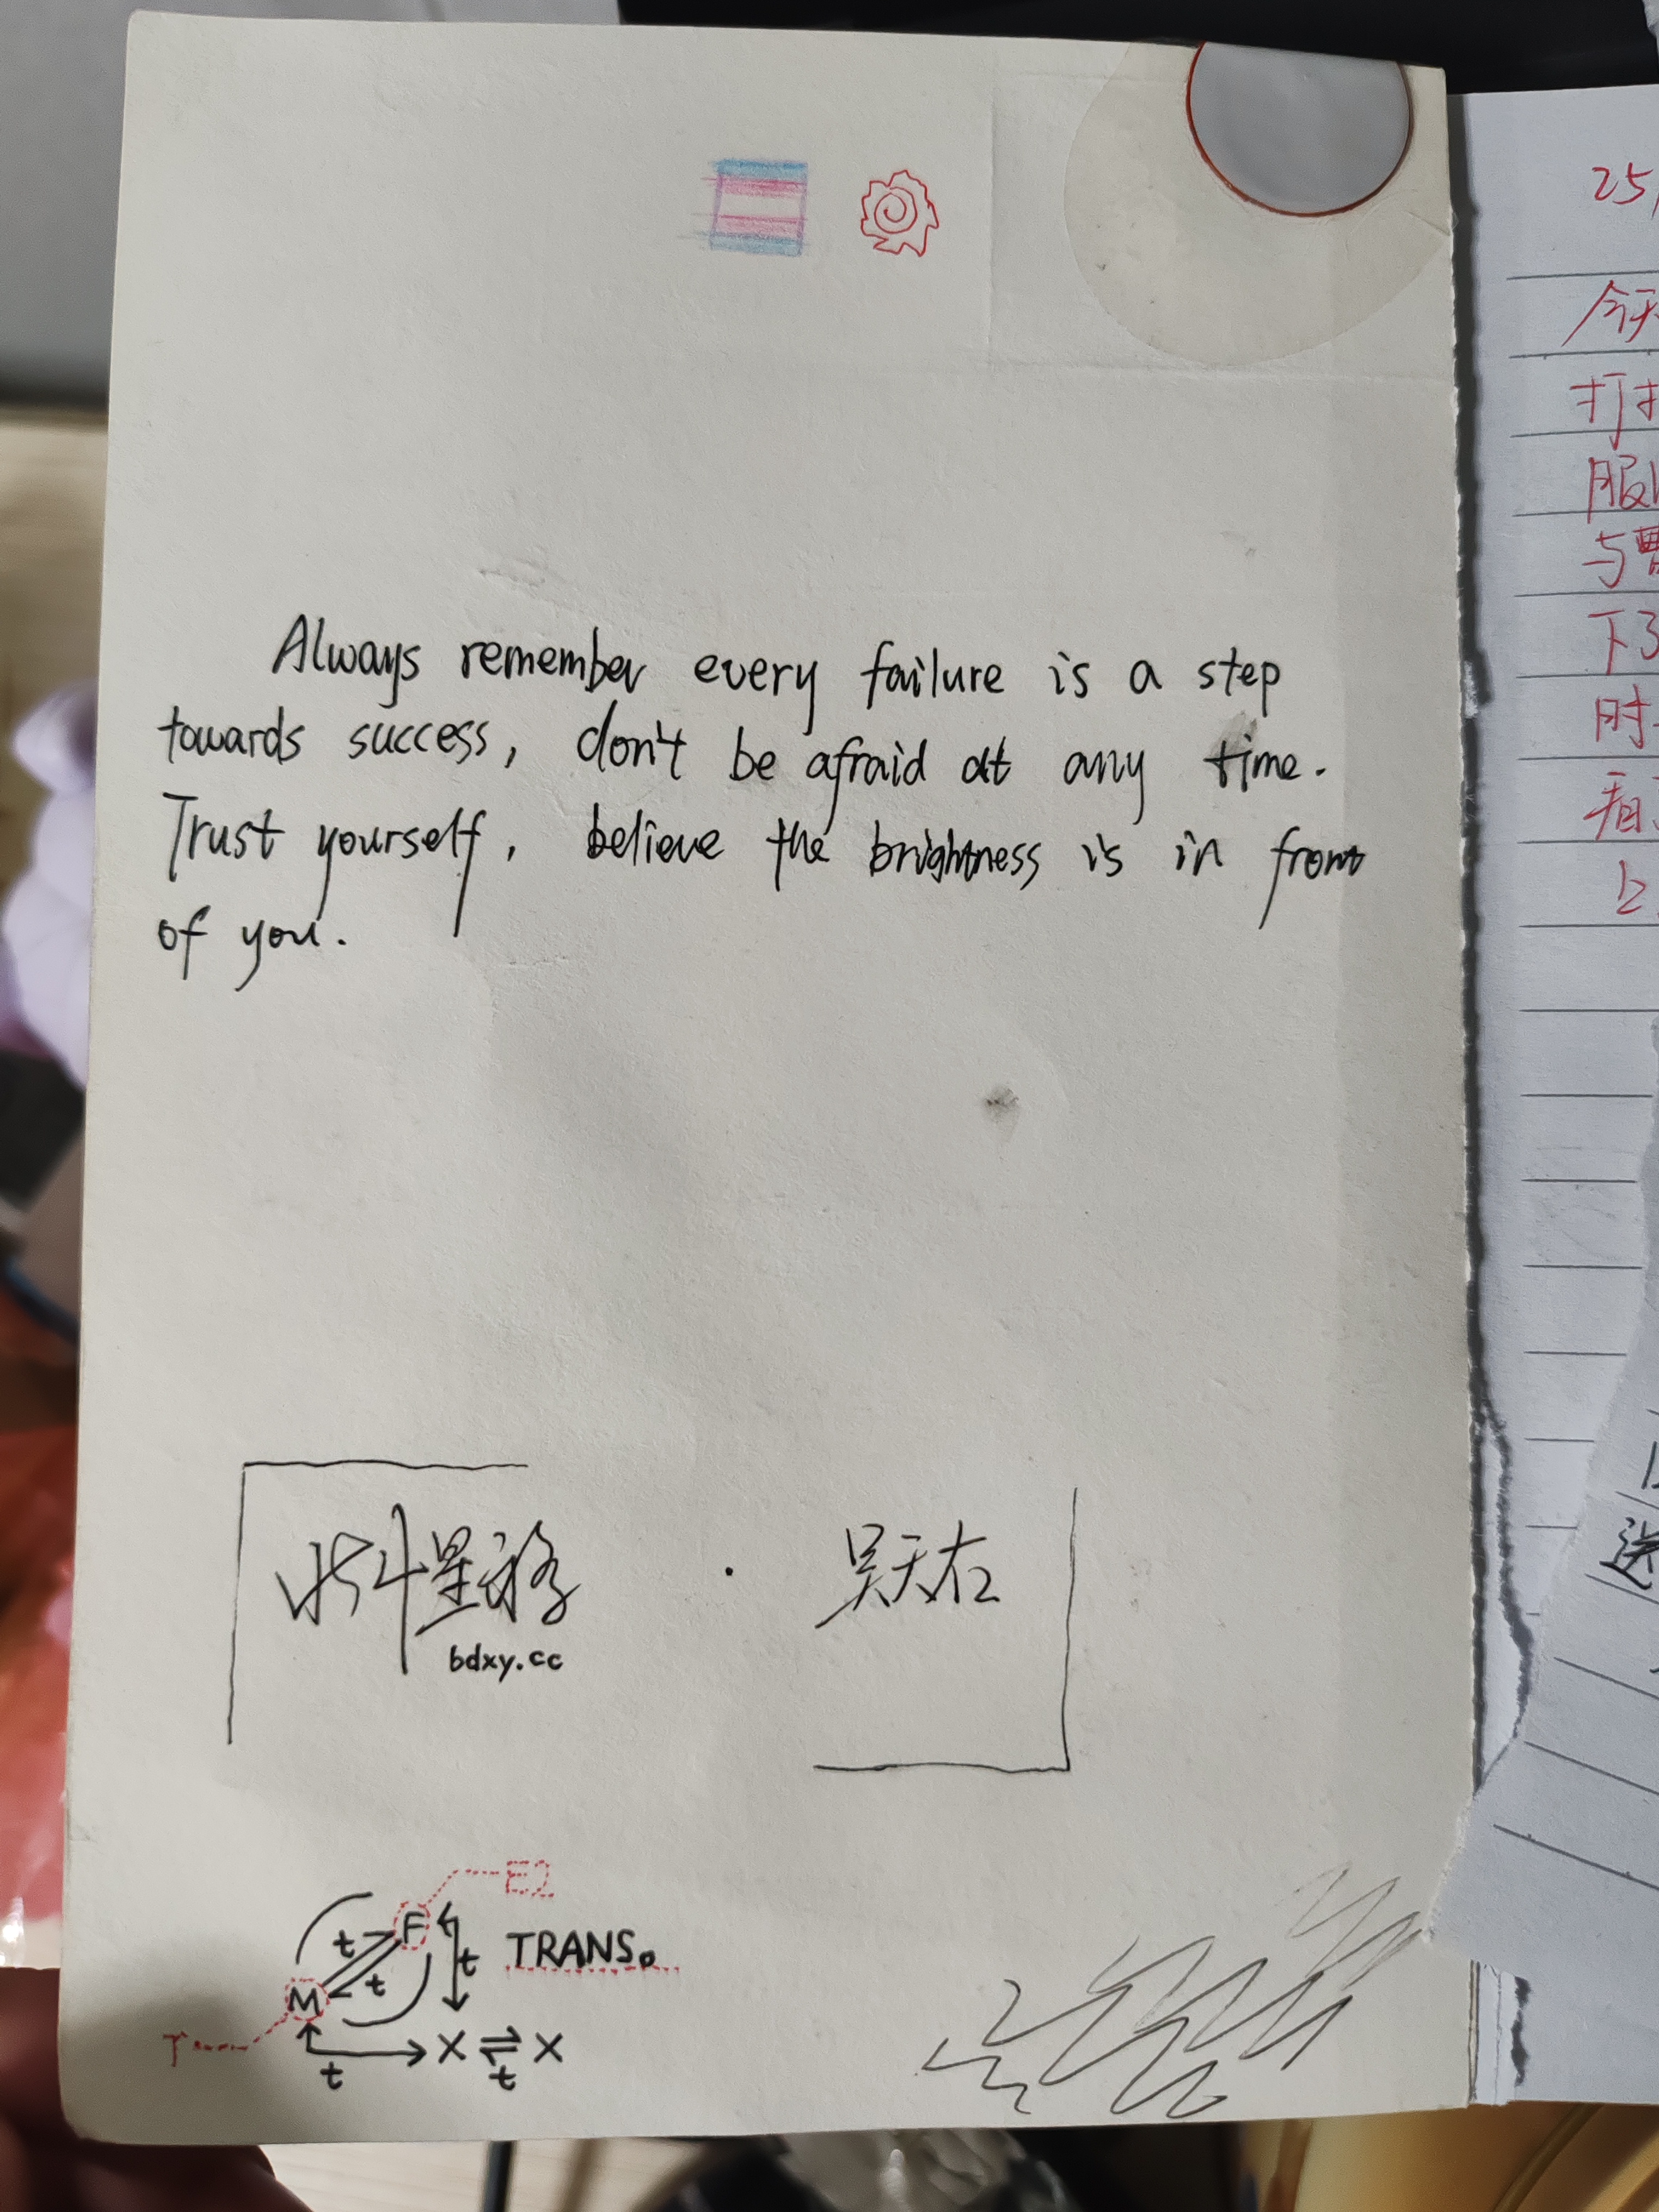 Always remember every failure is a step
towards success, don't be afraid at any time.
Trust yourself, believe the brightness is in front
of you.
北斗星移 · 吴天右
bdxy.cc
E2
F
t
t
t
TRANS。
M
T
t
X ⇌ X
t
25
今天
打
服
与
下了
时
看